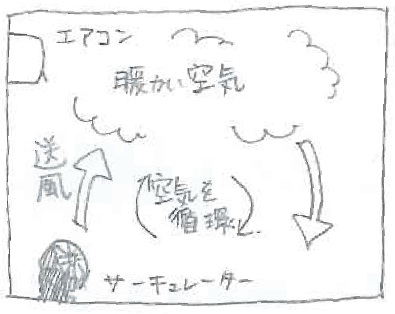 エアコン
暖かい空気
送風
(空気を
循環し)
サーキュレーター